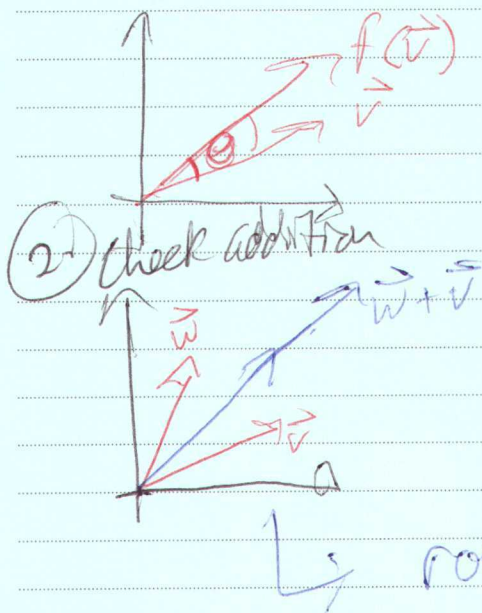 f(v⃗)
v⃗
θ
2) Check addition
w⃗
w⃗ + v⃗
v⃗
ro